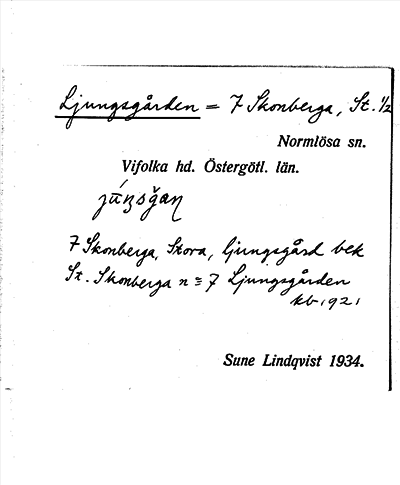 Ljungsgården = 7 Skonberga, St. 1/2
Normlösa sn.
Vifolka hd. Östergötl. län.
7 Skonberga, Stora, ljungsgård bek
St. Skonberga n = 7 Ljungsgården
kb 1921
Sune Lindqvist 1934.